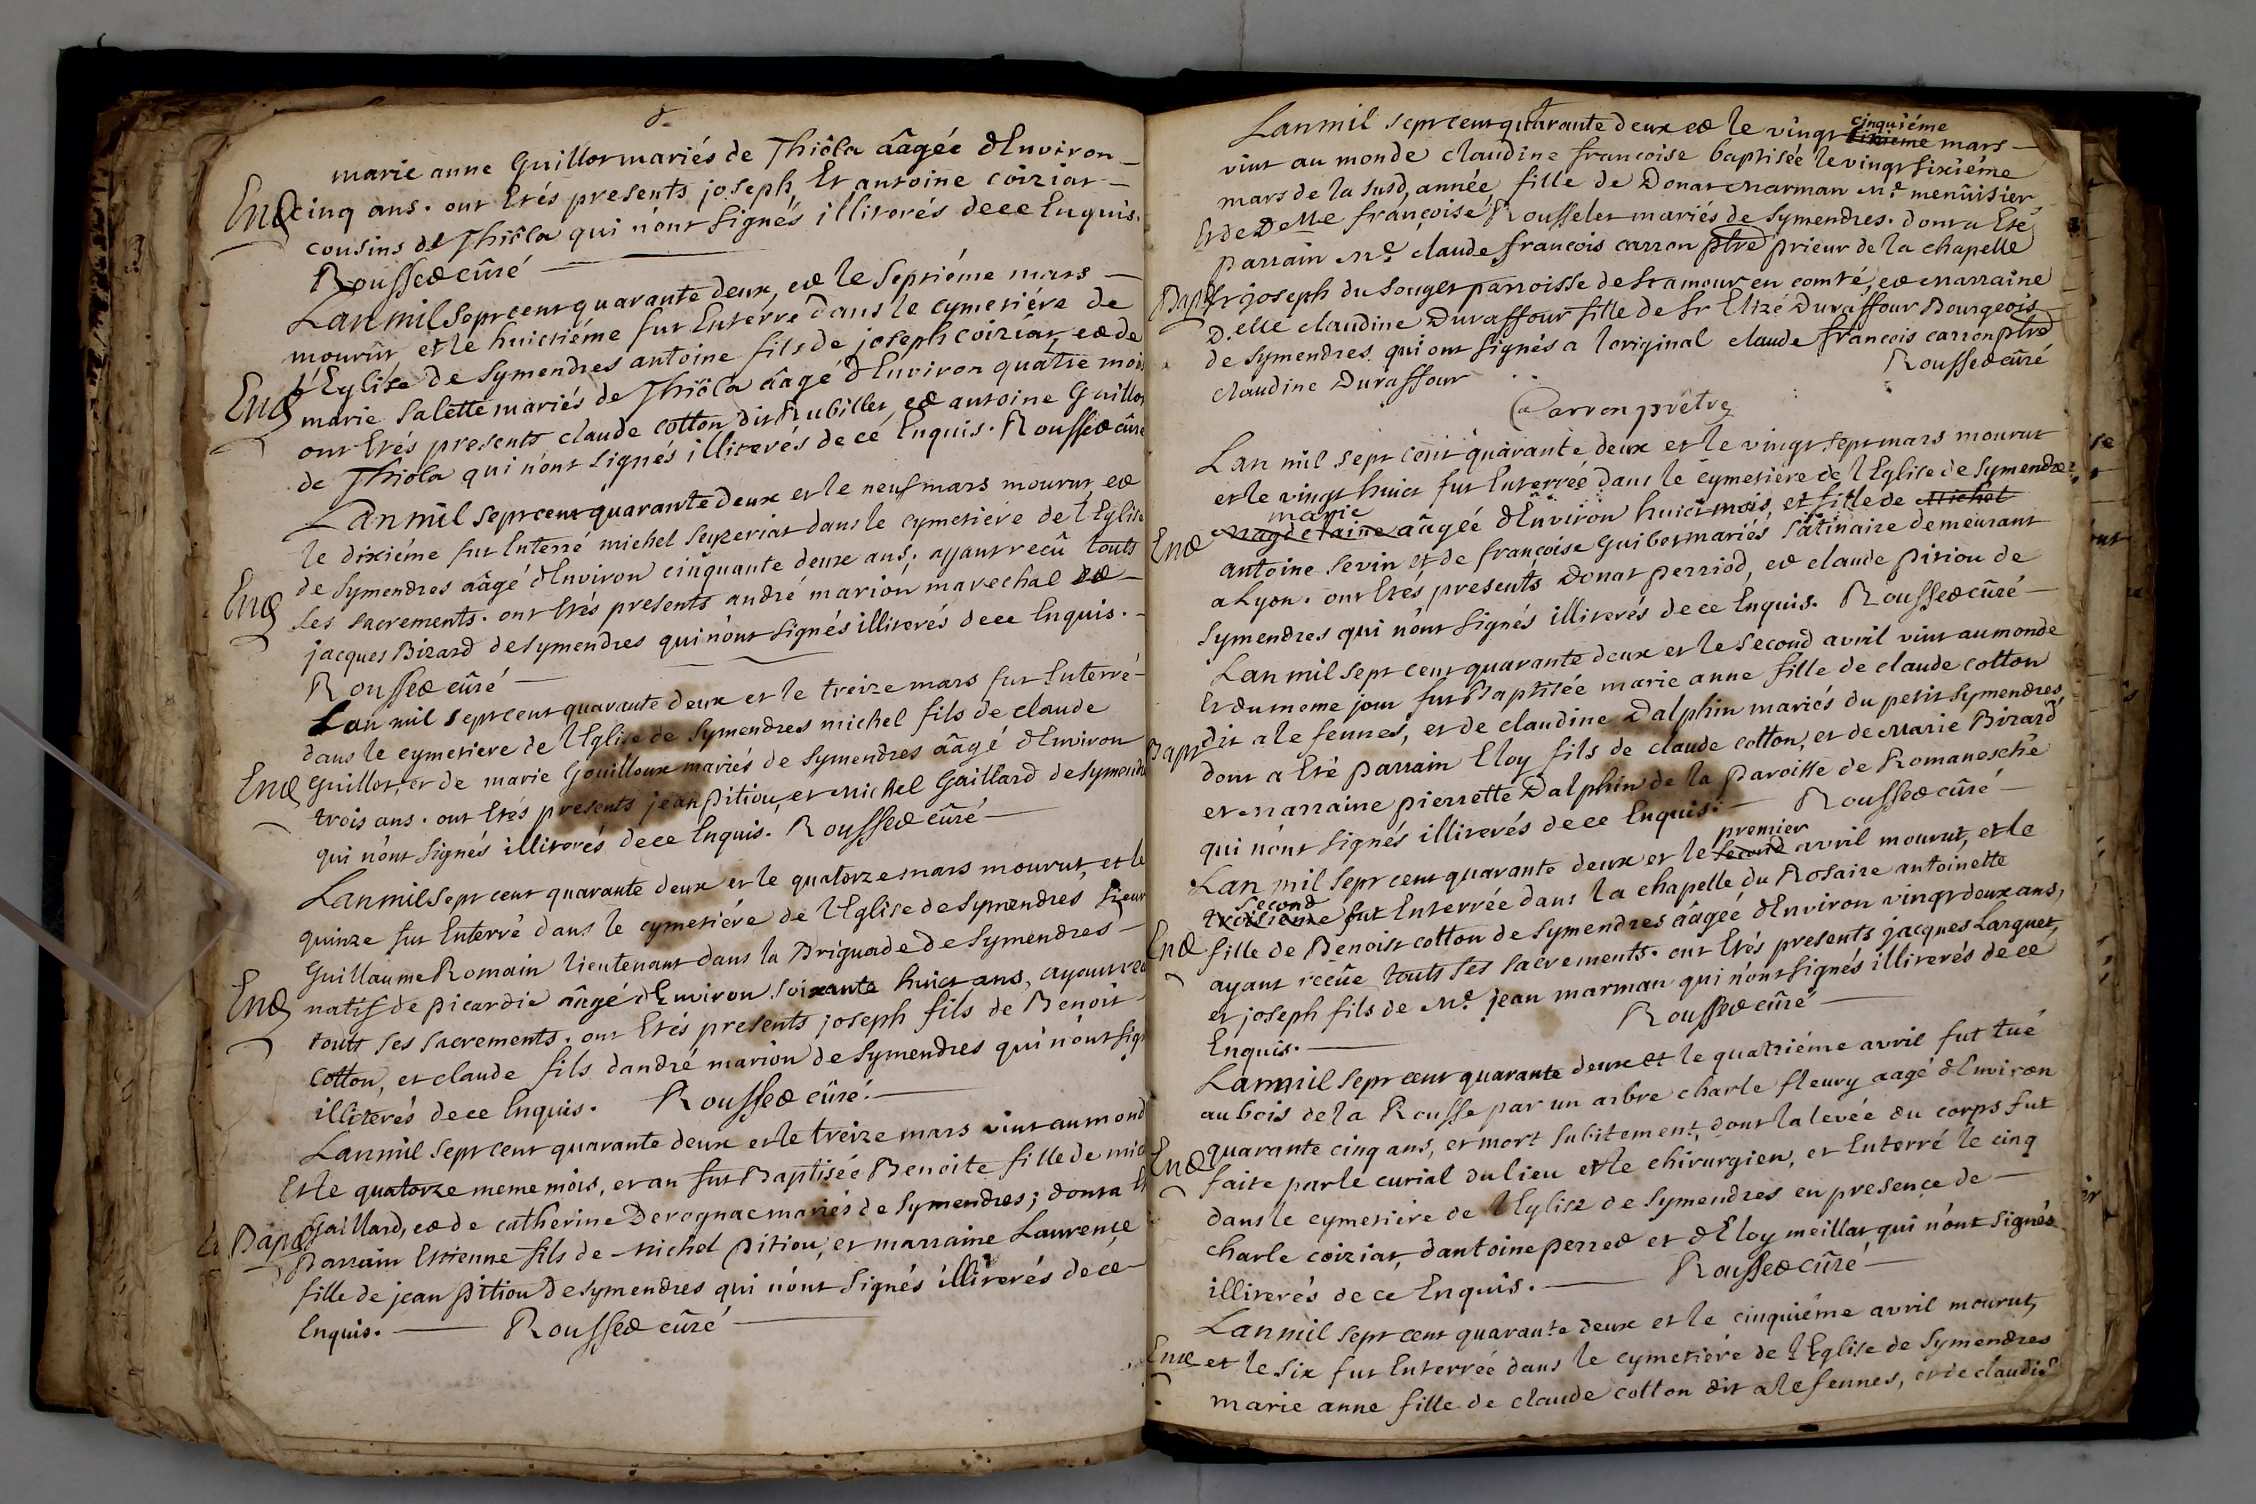 marie anne Guillot mariés de Thiôla âagée d'Environ
cinq ans. ont Etés presents joseph Et antoine coiziat
cousins de Thiôla qui n'ont signés illiterés de ce Enquis.
Roussed cûré
Lan mil sept cent quarante deux, ed le septiéme mars
mourût et le huictiéme fut Enterré dans le cymetiére de
l'Eglise de symendres antoine fils de joseph coiziat, ed de
marie salette mariés de Thiôla âagé d'Environ quatre mois
ont Etés presents claude cotton dit Rubillet, ed antoine Guillot
de Thiola qui n'ont signés illiterés de cé Enquis. Roussed cûré
Lan mil sept cent quarante deux et le neuf mars mourut, ed
le dixiéme fut Enterré michel seyzeriat dans le cymetiére de l'Eglise
de symendres âagé d'Environ cinquante deux ans, ayant recû touts
ses sacrements. ont Etés presents andré marion marechal ed
jacques Bizard de symendres qui n'ont signés illiterés de ce Enquis.
Roussed cûré
Lan mil sept cent quarante deux et le treize mars fut Enterré
dans le cymetiere de l'Eglise de symendres michel fils de claude
Guillot, et de marie Gouilloux mariés de symendres âagé d'Environ
trois ans. ont Etés presents jean pitiou, et michel Gaillard de symendres
qui n'ont signés illiterés de ce Enquis. Roussed cûré
Lan mil sept cent quarante deux et le quatorze mars mourut, et le
quinze fut Enterré dans le cymetiére de l'Eglise de symendres sieur
Guillaume Romain lieutenant dans la Briguade de symendres
natif de picardie âagé d'Environ soixante huict ans, ayant recû
touts ses sacrements. ont Etés presents joseph fils de Benoit
cotton, et claude fils dandré marion de symendres qui n'ont signés
illiterés de ce Enquis. Roussed cûré.
Lan mil sept cent quarante deux et le treize mars vint au monde
Et le quatorze meme mois, et an fut Baptisée Benoite fille de michel
Gaillard, ed de catherine Derognac mariés de symendres; dont a Eté
Parrain Etienne fils de michel pitiou, et marraine Laurence
fille de jean pitiou de symendres qui n'ont signés illiterés de cé
Enquis. Roussed cûré
Lan mil sept cent quarante deux ed le vingt cinquiéme mars
vint au monde claudine francoise baptisée le vingt sixiéme
mars de la susd, année fille de Donat marman Me menûisier
Et de Delle françoise Rousselet mariés de symendres. dont a Eté
parrain Mre claude francois carron ptre prieur de la chapelle
st joseph du souget parroisse de st amour en comté, ed marraine
D.elle claudine Duraffour fille de sr Elizé Duraffour Bourgeois
de symendres qui ont signés a l'original claude francois carron ptre
claudine Duraffour Roussed cûré
Carron prêtre
Lan mil sept cent quarante deux et le vingt sept mars mourut
et le vingt huict fut Enterrée dans le cymetiere de l'Eglise de symendres
marie
magdelaine âagée d'Environ huict mois, et fille de michel
antoine sevin et de françoise Guibet mariés satinaire demeurant
a Lyon. ont Etés presents Donat perriod, ed claude pitiou de
symendres qui n'ont signés illiterés de ce Enquis. Roussed cûré
Lan mil sept cent quarante deux et le second avril vint au monde
Et du meme jour fut Baptisée marie anne fille de claude cotton
dit ale fennes, et de claudine Dalphin mariés du petit symendres,
dont a Eté parrain Eloy fils de claude cotton, et de marie Bizard
et marraine pierrette Dalphin de la paroisse de Romanesche
qui n'ont signés illiterés de ce Enquis. Roussed cûré
premier
Lan mil sept cent quarante deux et le second avril mourut, et le
second
troisieme fut Enterrée dans la chapelle du Rosaire antoinette
fille de Benoist cotton de symendres âagée d'Environ vingt deux ans,
ayant recûe touts ses sacrements. ont Etés presents jacques Larguet,
et joseph fils de Me jean marman qui n'ont signés illiterés de ce
Enquis. Roussed cûré
Lan mil sept cent quarante deux et le quatriéme avril fut tué
au bois de la Rousse par un arbre charle fleury aagé d'Environ
quarante cinq ans, et mort subitement, dont la levée du corps fut
faite par le curial du lieu et le chirurgien, et Enterré le cinq
dans le cymetiere de l'Eglise de symendres en presence de
charle coiziat, dantoine perred et d'Eloy meillat qui n'ont signés
illiterés de ce Enquis. Roussed cûré
Lan mil sept cent quarante deux et le cinquiéme avril mourut,
et le six fut Enterrée dans le cymetiére de l'Eglise de symendres
marie anne fille de claude cotton dit ale fennes, et de claudine